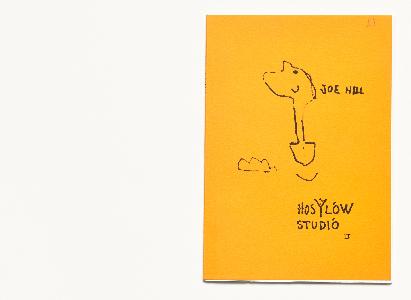 JOE HILL
HOSYLÓW
STUDIÓ